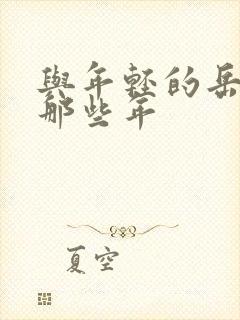 與年輕的岳
那些年
夏空